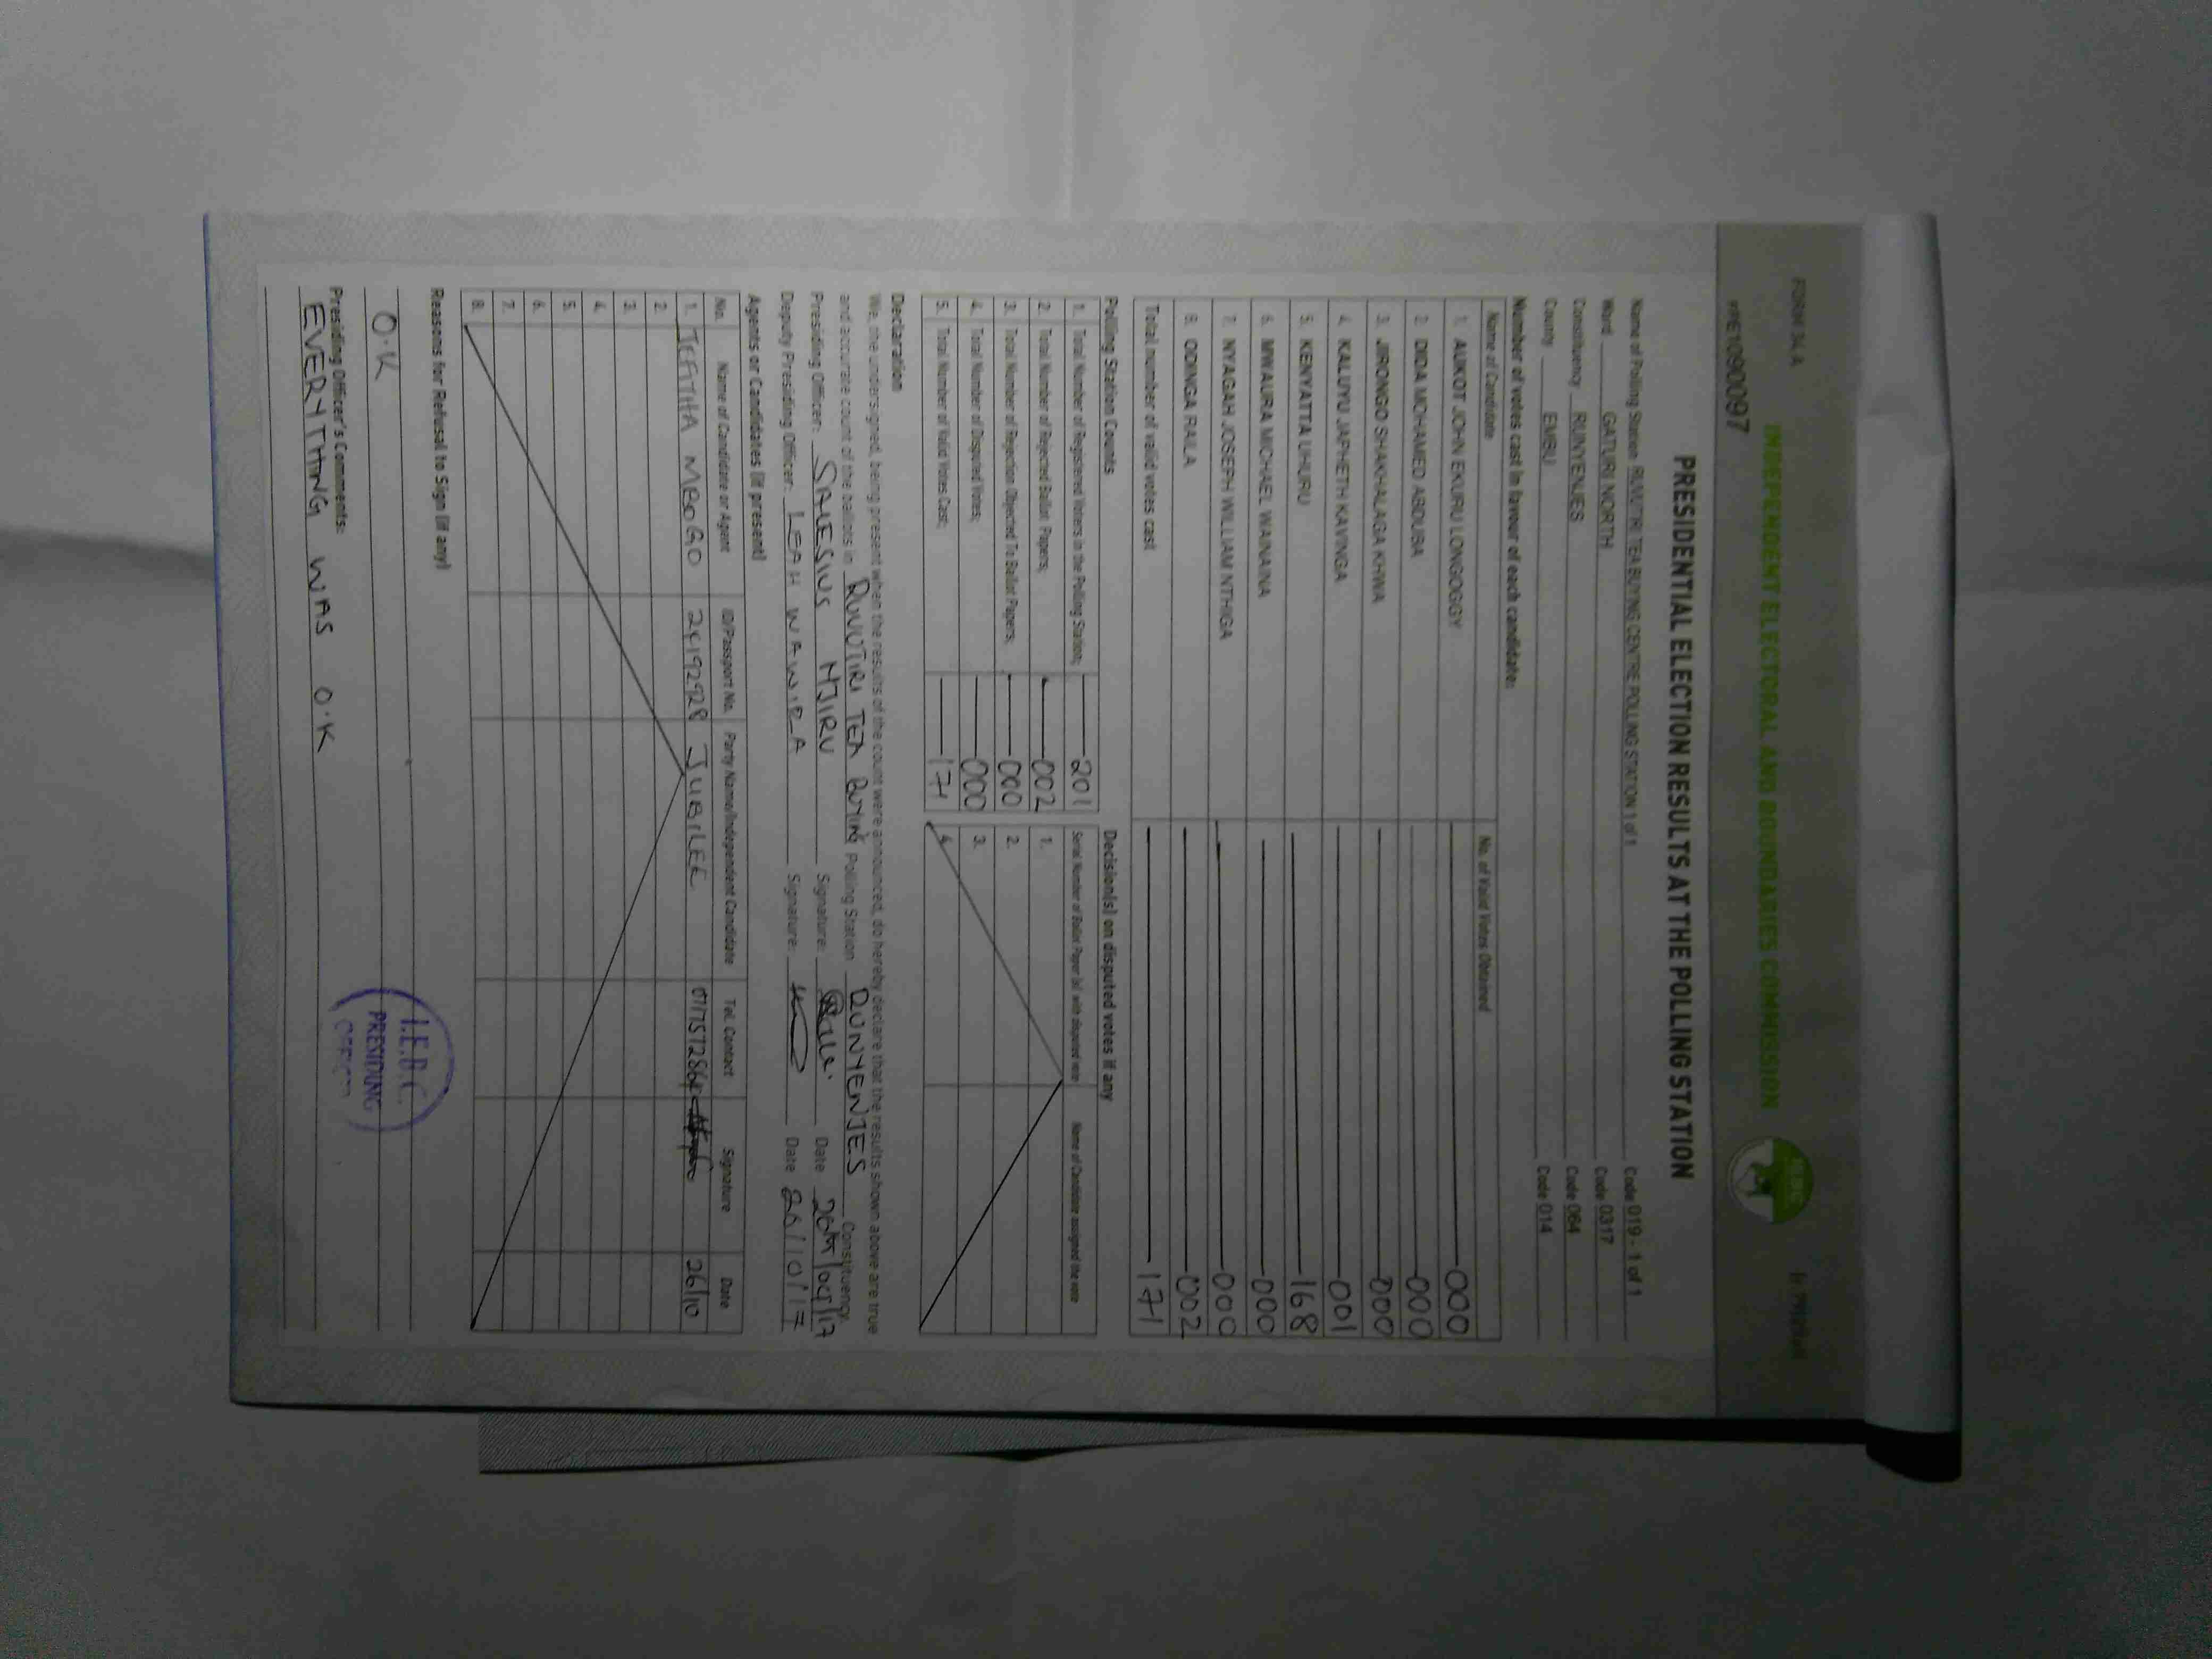 FORM 34 A
INDEPENDENT ELECTORAL AND BOUNDARIES COMMISSION
PRE1090097
PRESIDENTIAL ELECTION RESULTS AT THE POLLING STATION
Name of Polling Station RUVUTIRI TEA BUYING CENTRE POLLING STATION 1 of 1 Code 019 - 1 of 1
Ward GATURI NORTH Code 0317
Constituency RUNYENJES Code 064
County EMBU Code 014
Number of votes cast in favour of each candidate:
Name of Candidate No. of Valid Votes Obtained
1. AUKOT JOHN EKURU LONGOGGY 000
2. DIDA MOHAMED ABDUBA 000
3. JIRONGO SHAKHALAGA KHWA 000
4. KALUYU JAPHETH KAVINGA 001
5. KENYATTA UHURU 168
6. MWAURA MICHAEL WAINAINA 000
7. NYAGAH JOSEPH WILLIAM NTHIGA 000
8. ODINGA RAILA 002
Total number of valid votes cast 171
Polling Station Counts
1. Total Number of Registered Voters in the Polling Station; 201
2. Total Number of Rejected Ballot Papers; 002
3. Total Number of Rejection Objected To Ballot Papers; 000
4. Total Number of Disputed Votes; 000
5. Total Number of Valid Votes Cast; 171
Decision(s) on disputed votes if any
Serial Number of Ballot Paper (s) with disputed vote Name of Candidate assigned the vote
1.
2.
3.
4.
Declaration
We, the undersigned, being present when the results of the count were announced, do hereby declare that the results shown above are true
and accurate count of the ballots in RUVUTIRI TEA BUYING Polling Station RUNYENJES Constituency.
Presiding Officer: SALESIUS NJIRU Signature: Date 26th/OCT/17
Deputy Presiding Officer: LEAH WAWIRA Signature: Date 26/10/17
Agents or Candidates (if present)
No. Name of Candidate or Agent ID/Passport No. Party Name/Independent Candidate Tel. Contact Signature Date
1. MBOGO 24192928 JUBILEE 26/10
2.
3.
4.
5.
6.
7.
8.
Reasons for Refusal to Sign (if any)
O.K
Presiding Officer's Comments:
EVERYTHING WAS O.K
I.E.B.C.
PRESIDING